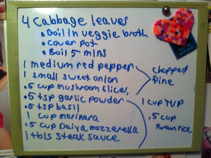 4 Cabbage leaves
• Boil in veggie broth
• Cover pot
• Boil 5 mins
1 medium red pepper
1 small sweet onion
.5 cup mushroom slices
.5 tsp garlic powder
.5 tsp basil
1 cup marinara
.5 cup Daiya mozzerella
1 tbls steak sauce
chopped
fine
1 cup TVP
.5 cup
Brown rice